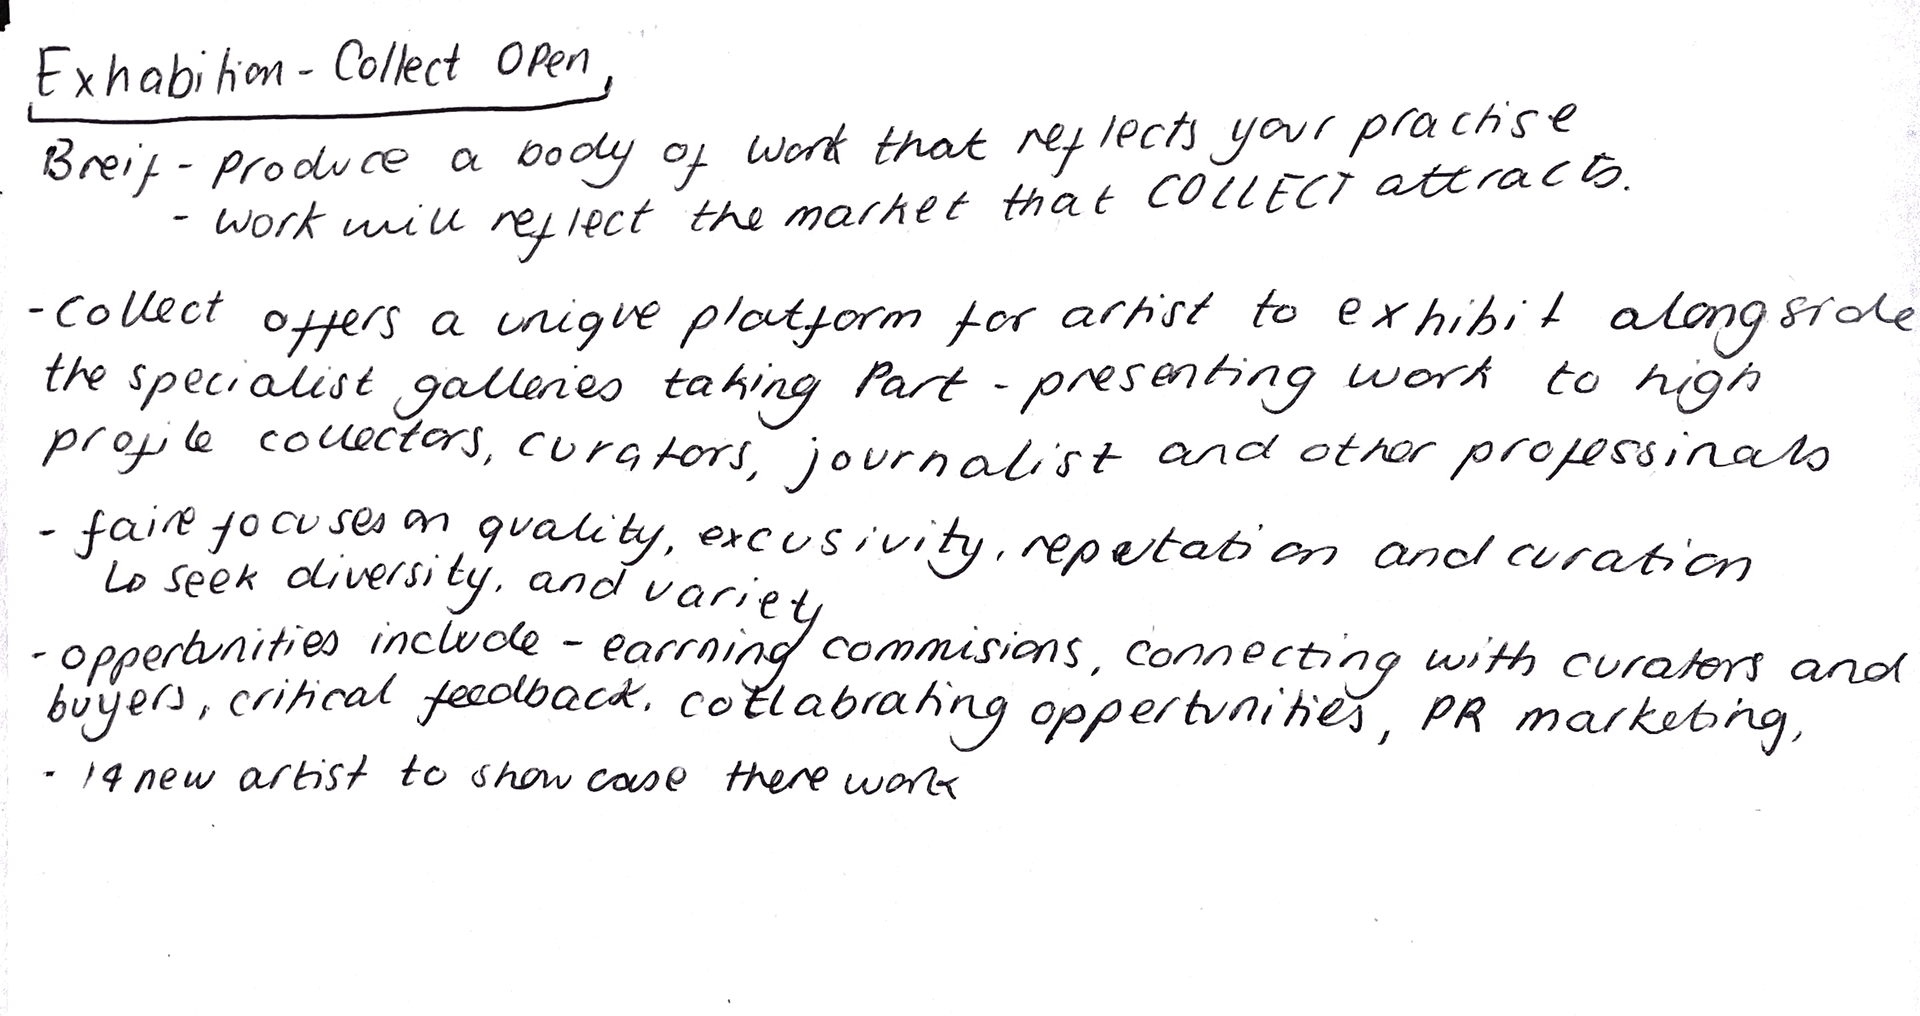 Exhabition - Collect Open
Breif - produce a body of work that reflects your practise
- work will reflect the market that COllECT attracts.
- Collect offers a unique platform for artist to exhibit alongside
the specialist galleries taking Part - presenting work to high
profile collectors, curators, journalist and other professinals
- faire focuses on quality, excusivity, reputation and curation
↳ seek diversity, and variety
- oppertunities include - earrning commisions, connecting with curators and
buyers, critical feedback. collabrating oppertunities, PR marketing,
- 14 new artist to show case there work